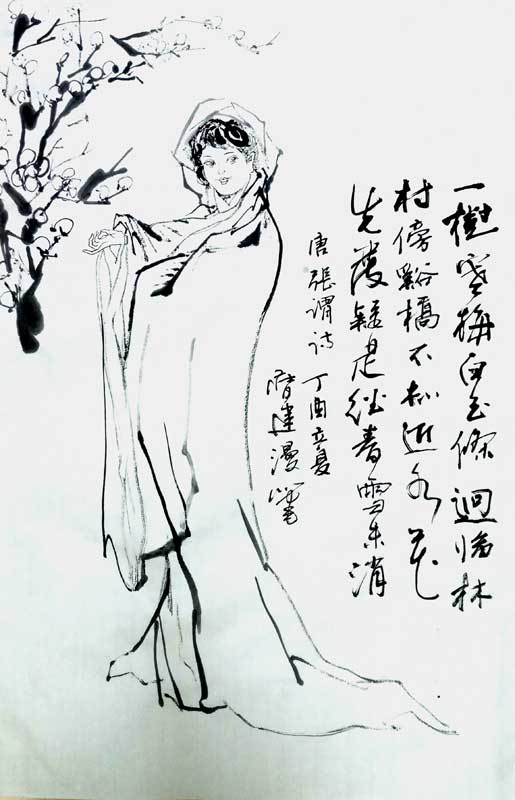 一樹寒梅白玉條迥臨林
村傍谿橋不知近水花
先發疑是經春雪未消
唐張謂詩 丁酉立夏
建漫筆